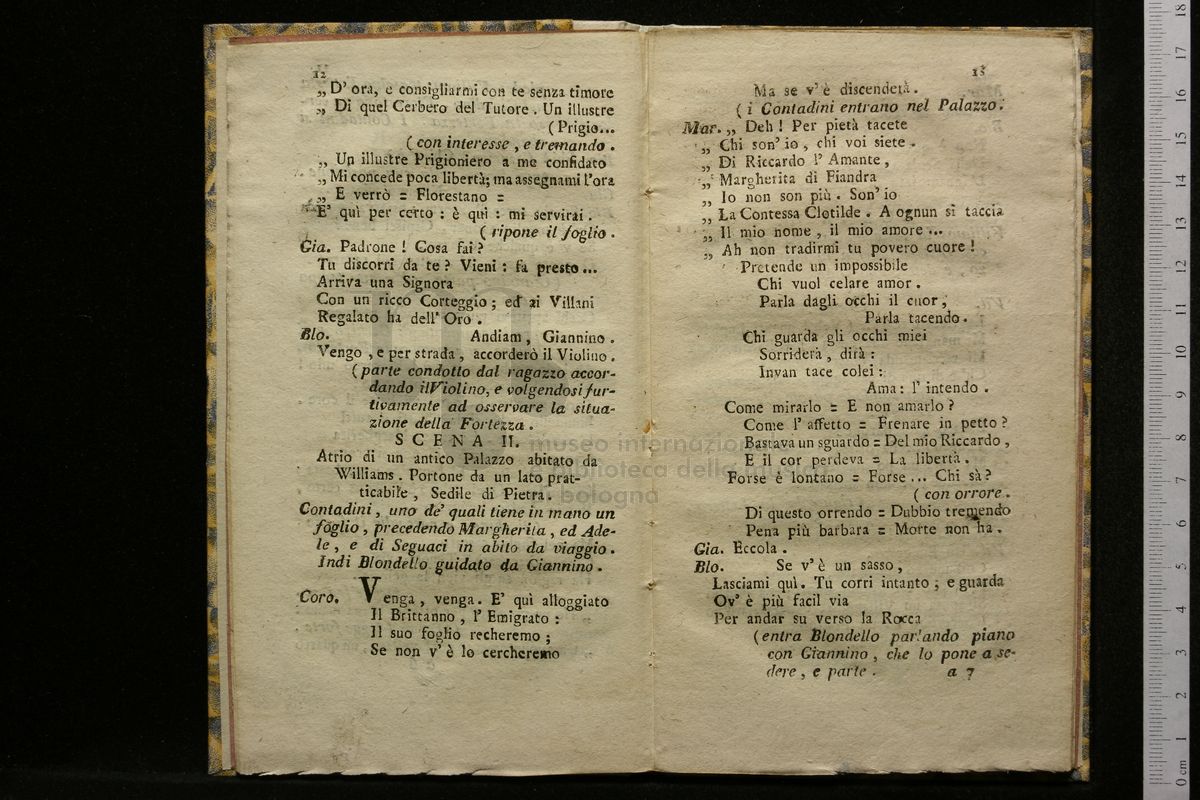 12
„ D' ora, e consigliarmi con te senza timore
„ Di quel Cerbero del Tutore. Un illustre
( Prigio...
( con interesse, e tremando.
„ Un illustre Prigioniero a me confidato
„ Mi concede poca libertà; ma assegnami l'ora
„ E verrò = Florestano =
E' quì per certo : è quì : mi servirai.
( ripone il foglio.
Gia. Padrone ! Cosa fai ?
Tu discorri da te ? Vieni : fa presto...
Arriva una Signora
Con un ricco Corteggio ; ed ai Villani
Regalato ha dell' Oro.
Blo. Andiam, Giannino.
Vengo, e per strada, accorderò il Violino.
( parte condotto dal ragazzo accor-
dando il Violino, e volgendosi fur-
tivamente ad osservare la situa-
zione della Fortezza.
SCENA II.
Atrio di un antico Palazzo abitato da
Williams. Portone da un lato prat-
ticabile, Sedile di Pietra.
Contadini, uno de' quali tiene in mano un
foglio, precedendo Margherita, ed Ade-
le, e di Seguaci in abito da viaggio.
Indi Blondello guidato da Giannino.
Coro. Venga, venga. E' quì alloggiato
Il Brittanno, l' Emigrato :
Il suo foglio recheremo ;
Se non v' è lo cercheremo
13
Ma se v' è discenderà.
( i Contadini entrano nel Palazzo.
Mar. „ Deh ! Per pietà tacete
„ Chi son' io, chi voi siete.
„ Di Riccardo l' Amante,
„ Margherita di Fiandra
„ Io non son più. Son' io
„ La Contessa Clotilde. A ognun si taccia
„ Il mio nome, il mio amore...
„ Ah non tradirmi tu povero cuore !
Pretende un impossibile
Chi vuol celare amor.
Parla dagli occhi il cuor,
Parla tacendo.
Chi guarda gli occhi miei
Sorriderà, dirà :
Invan tace colei :
Ama : l' intendo.
Come mirarlo = E non amarlo ?
Come l' affetto = Frenare in petto ?
Bastava un sguardo = Del mio Riccardo,
E il cor perdeva = La libertà.
Forse è lontano = Forse... Chi sà ?
( con orrore.
Di questo orrendo = Dubbio tremendo
Pena più barbara = Morte non ha.
Gia. Eccola.
Blo. Se v' è un sasso,
Lasciami quì. Tu corri intanto ; e guarda
Ov' è più facil via
Per andar su verso la Rocca
( entra Blondello parlando piano
con Giannino, che lo pone a se-
dere, e parte. a 7
museo internazionale
biblioteca della musica
bologna
0 cm 1 2 3 4 5 6 7 8 9 10 11 12 13 14 15 16 17 18